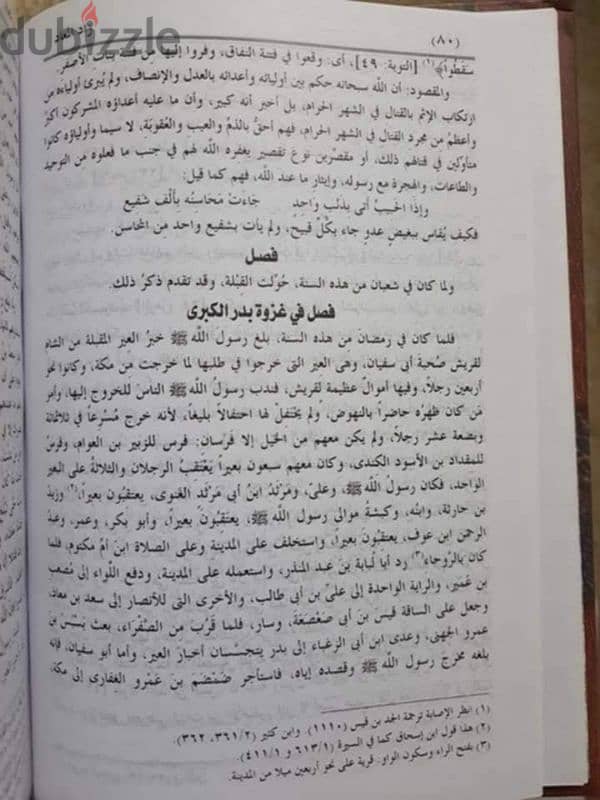 dubizzle
زاد المعاد
(٨٠)
سَقَطُوا﴾(١) [التوبة: ٤٩]، أى: وقعوا في فتنة النفاق، وفروا إليها من فتنة بنات الأصفر.
والمقصود: أن الله سبحانه حكم بين أوليائه وأعدائه بالعدل والإنصاف، ولم يُبرئ أولياءه من
ارتكاب الإثم بالقتال في الشهر الحرام، بل أخبر أنه كبير، وأن ما عليه أعداؤه المشركون أكبرُ
وأعظمُ من مجرد القتال في الشهر الحرام، فهم أحقُّ بالذمِّ والعيب والعُقوبَة، لا سيما وأولياؤه كانوا
متأوِّلين في قتالهم ذلك، أو مقصِّرين نوعَ تقصير يغفره الله لهم في جنب ما فعلوه من التوحيد
والطاعات، والهجرة مع رسوله، وإيثار ما عند الله، فهم كما قيل:
وإِذَا الحَبِيبُ أَتى بذَنْبٍ واحِدٍ جَاءَتْ مَحَاسنُه بألْفِ شَفِيعِ
فكيف يُقاس ببغيضٍ عدوٍ جاء بكُلِّ قبيح، ولم يأت بشفيع واحد من المحاسن.
فصل
ولما كان في شعبان من هذه السنة، حُوِّلت القِبْلة، وقد تقدم ذكرُ ذلك.
فصل في غزوة بدر الكبرى
فلما كان في رمضانَ من هذه السنة، بلغ رسولَ اللهِ ﷺ خبرُ العير المقبلة من الشام
لقريش صُحبة أبى سفيان، وهى العير التى خرجوا في طلبها لما خرجت من مكة، وكانوا نحوَ
أربعين رجلاً، وفيها أموالٌ عظيمة لقريش، فندب رسولُ اللهِ ﷺ الناسَ للخروج إليها، وأمر
مَن كان ظهرُه حاضراً بالنهوض، ولم يحتفِلْ لها احتفالاً بليغاً، لأنه خرج مُسْرعاً في ثلاثمائة
وبضعة عشر رجلاً، ولم يكن معهم من الخيل إلا فرسان: فرس للزبير بن العوام، وفرسٌ
للمقداد بن الأسود الكندى، وكان معهم سبعون بعيراً يَعْتَقِبُ الرجلان والثلاثةُ على البعير
الواحد، فكان رسول اللهِ ﷺ، وعلىٌ، ومَرْثَدُ ابنُ أبى مَرْثَد الغَنوى، يعتقبون بعيراً،(٢) وزيدُ
بن حارثة، وابنُه، وكبشةُ موالى رسول الله ﷺ، يعتقِبُونَ بعيراً، وأبو بكر، وعمر، وعبدُ
الرحمن ابن عوف، يعتقبونَ بعيراً، واستخلف على المدينة وعلى الصلاة ابنَ أُمِّ مكتوم، فلما
كان بالرَّوحاء(٣) رد أبا لُبابة بنَ عبد المنذر، واستعمله على المدينة، ودفع اللواءَ إلى مُصعبِ
بن عُمَير، والراية الواحدة إلى علىِّ بن أبى طالب، والأخرى التى للأنصار إلى سعد بن معاذ،
وجعل على الساقة قيسَ بنَ أبى صَعْصَعَة، وسار، فلما قَرُبَ من الصَّفْرَاء، بعث بَسْبَسَ بنَ
عمرو الجهنى، وعدى ابنَ أبى الزغباء إلى بدر يتجسَّسان أخبارَ العير، وأما أبو سفيان، فإنه
بلغه مخرجُ رسول اللهِ ﷺ وقصدُه إياه، فاستأجر ضَمْضَمَ بنَ عَمْرو الغِفارى إلى مكة،
(١) انظر الإصابة ترجمة الجد بن قيس (١١١٠)، وابن كثير (٢/ ٣٦١، ٣٦٢).
(٢) هذا قول ابن إسحاق كما في السيرة (٦١٣/١ و ٤١١/١)
(٣) بفتح الراء وسكون الواو. قرية على نحو أربعين ميلا من المدينة.